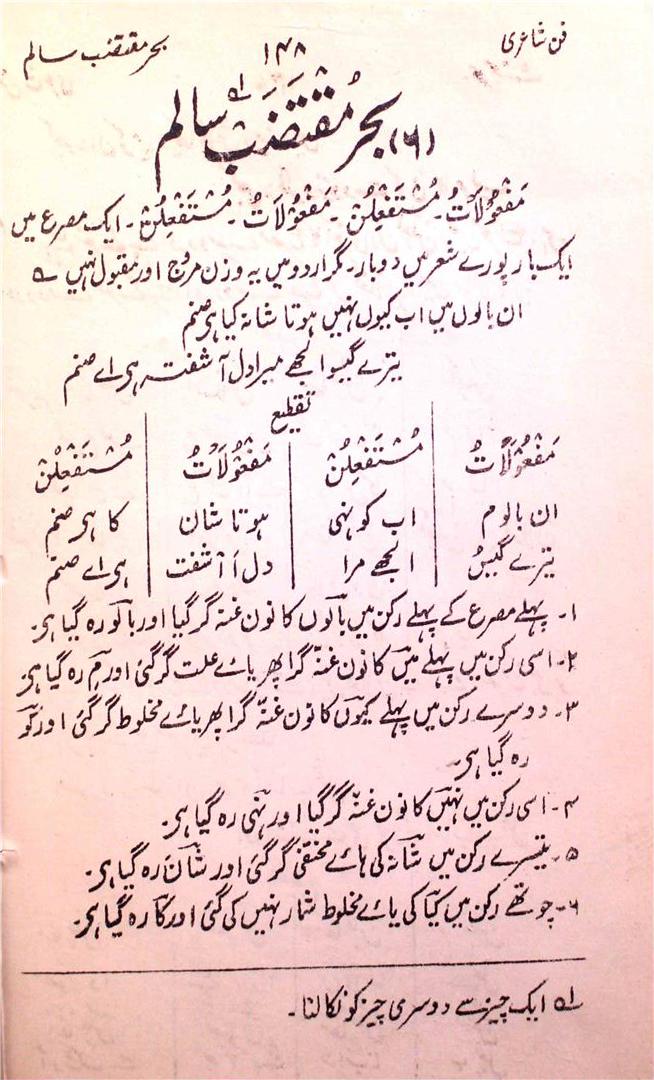 فن شاعری ۱۴۸ بحر مقتضب سالم
(۶) بحر مُقتَضَب سالم ؎۱
مَفْعُوْلَاتُ۔ مُسْتَفْعِلُنْ۔ مَفْعُوْلَاتُ۔ مُسْتَفْعِلُنْ۔ ایک مصرع میں
ایک بار پورے شعر میں دوبار۔ گر اردو میں یہ وزن مروج اور مقبول نہیں ؎
ان بالوں میں اب کیوں نہیں ہوتا شانہ کیا ہر صنم
تیرے گیسو الجھے میرا دل آشفتہ ہر اے صنم
تقطیع
مَفْعُوْلَاتُ مُسْتَفْعِلُنْ مَفْعُوْلَاتُ مُسْتَفْعِلُنْ
ان بالوم اب کونہی ہوتا شان کا ہر صنم
تیرے گیسُ الجھے مرا دل اَا شفت ہر اے صنم
۱۔ پہلے مصرع کے پہلے رکن میں بالوں کا نون غنہ گر گیا اور بالو رہ گیا ہر۔
۲۔ اسی رکن میں پہلے میں کا نون غنّہ گرا پھر یائے علت گر گئی اور مِ رہ گیا ہر
۳۔ دوسرے رکن میں پہلے کیوں کا نون غنّہ گرا پھر یائے مخلوط گر گئی اور کو
رہ گیا ہر۔
۴۔ اسی رکن میں نہیں کا نون غنّہ گر گیا اور نہی رہ گیا ہر۔
۵۔ تیسرے رکن میں شانہ کی ہائے مختفی گر گئی اور شان رہ گیا ہر۔
۶۔ چوتھے رکن میں کیا کی یائے مخلوط شمار نہیں کی گئی اور کا رہ گیا ہر۔
؎۱ ایک چیز سے دوسری چیز کو نکالنا۔